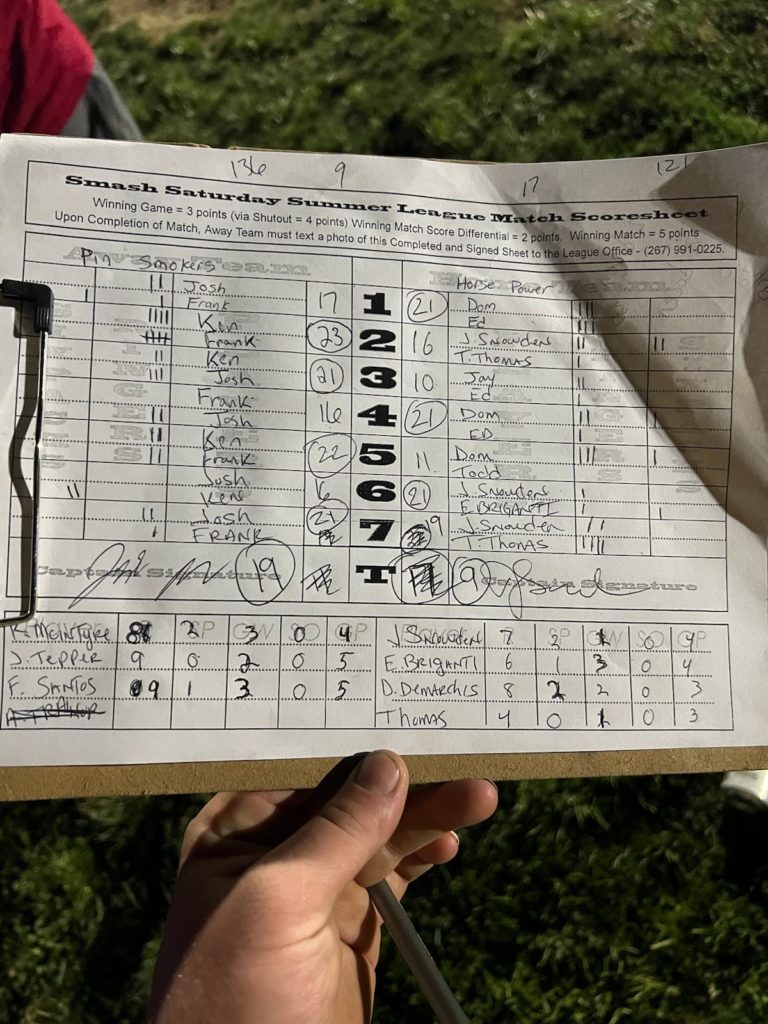 136 9 17 121
Smash Saturday Summer League Match Scoresheet
Winning Game = 3 points (via Shutout = 4 points) Winning Match Score Differential = 2 points. Winning Match = 5 points
Upon Completion of Match, Away Team must text a photo of this Completed and Signed Sheet to the League Office - (267) 991-0225.
Pin Smokers Horse Power
Josh Dom
Frank 17 1 21 Ed
Ken J Snowden
Frank 23 2 16 T. Thomas
Ken Jay
Josh 21 3 10 Ed
Frank Dom
Josh 16 4 21 ED
Ken Dom
Frank 22 5 11 Todd
Josh J Snowden
Ken 6 21 E. BRIGANTI
Josh J. Snowden
FRANK 21 7 19 T. Thomas
Captain Signature 19 T 19 Captain Signature
K. McINTYRE 8 2 3 0 4 J SNOWDEN 7 2 1 0 4
J. TEPPER 9 0 2 0 5 E. BRIGANTI 6 1 3 0 4
F. SANTOS 9 1 3 0 5 D. DEMARCHIS 8 2 2 0 3
THOMAS 4 0 1 0 3